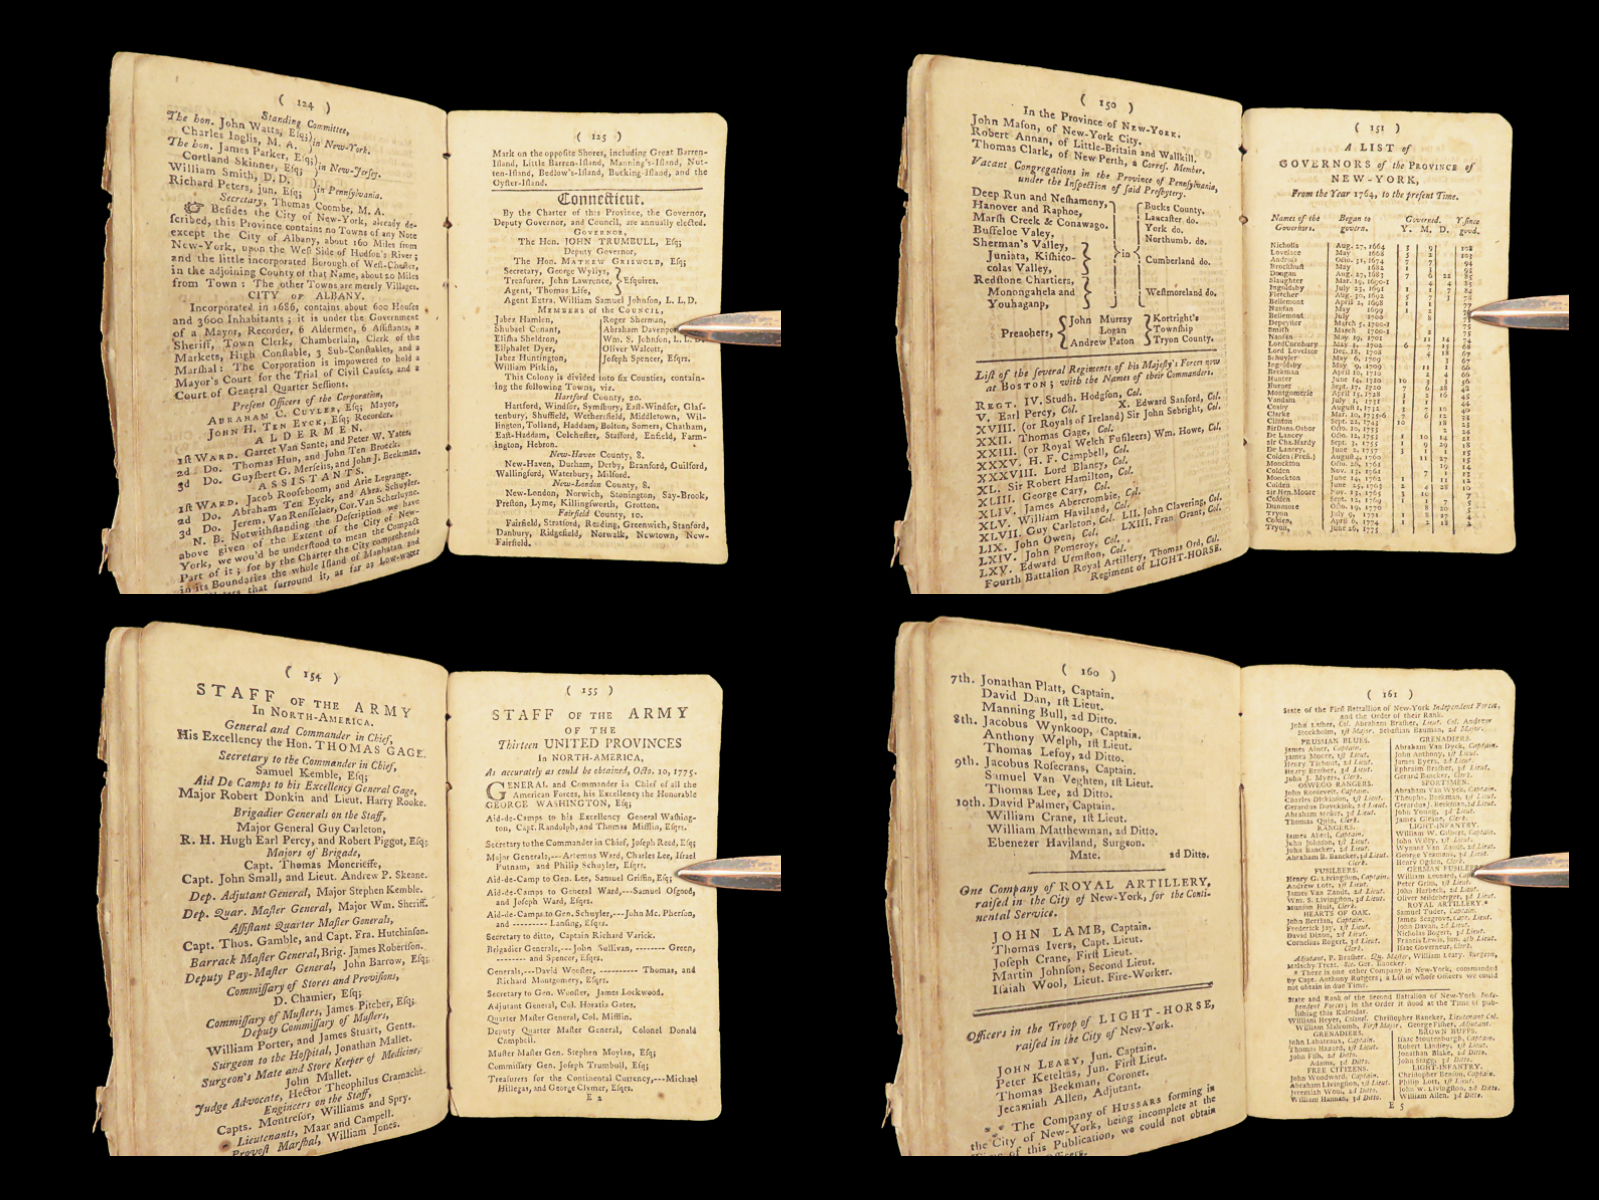 ( 124 )
Standing Committee,
The hon. John Watts, Esq;
Charles Inglis, M. A. } in New-York.
The hon. James Parker, Esq;
Cortland Skinner, Esq; } in New-Jersey.
William Smith, D. D.
Richard Peters, jun. Esq; } in Pennsylvania.
Secretary, Thomas Coombe, M. A.
☞ Besides the City of New-York, already de-
scribed, this Province contains no Towns of any Note
except the City of Albany, about 160 Miles from
New-York, upon the West Side of Hudson's River;
and the little incorporated Borough of West-Chester,
in the adjoining County of that Name, about 20 Miles
from Town: The other Towns are merely Villages.
CITY OF ALBANY.
Incorporated in 1686, contains about 600 Houses
and 3600 Inhabitants; it is under the Government
of a Mayor, Recorder, 6 Aldermen, 6 Assistants, a
Sheriff, Town Clerk, Chamberlain, Clerk of the
Markets, High Constable, 3 Sub-Constables, and a
Marshal: The Corporation is impowered to hold a
Mayor's Court for the Trial of Civil Causes, and a
Court of General Quarter Sessions.
Present Officers of the Corporation,
ABRAHAM C. CUYLER, Esq; Mayor,
JOHN H. TEN EYCK, Esq; Recorder.
ALDERMEN.
1st WARD. Garret Van Sante, and Peter W. Yates,
2d Do. Thomas Hun, and John Ten Broeck.
3d Do. Guysbert G. Merselis, and John J. Beekman.
ASSISTANTS.
1st WARD. Jacob Rooseboom, and Arie Legrange.
2d Do. Abraham Ten Eyck, and Abra. Schuyler.
3d Do. Jerem. Van Rensselaer, Cor. Van Scherluyne.
N. B. Notwithstanding the Description we have
above given of the Extent of the City of New-
York, we wou'd be understood to mean the Compact
Part of it; for by the Charter the City comprehends
in its Boundaries the whole Island of Manhatan and
that surround it, as far as Low-water
( 125 )
Mark on the opposite Shores, including Great Barren-
Island, Little Barren-Island, Manning's-Island, Nut-
ten-Island, Bedlow's-Island, Bucking-Island, and the
Oyster-Island.
Connecticut.
By the Charter of this Province, the Governor,
Deputy Governor, and Council, are annually elected.
GOVERNOR,
The Hon. JOHN TRUMBULL, Esq;
Deputy Governor,
The Hon. MATHEW GRISWOLD, Esq;
Secretary, George Wyllys,
Treasurer, John Lawrence, } Esquires.
Agent, Thomas Life,
Agent Extra. William Samuel Johnson, L. L. D.
MEMBERS of the COUNCIL,
Jabez Hamlen, Roger Sherman,
Shubael Conant, Abraham Davenport
Elisha Sheldron, Wm. S. Johnson, L. L. D.
Eliphalet Dyer, Oliver Walcott,
Jabez Huntington, Joseph Spencer, Esqrs.
William Pitkin,
This Colony is divided into six Counties, contain-
ing the following Towns, viz.
Hartford County, 20.
Hartford, Windsor, Symsbury, East-Windsor, Glas-
tenbury, Shuffield, Wethersfield, Middletown, Wil-
lington, Tolland, Haddam, Bolton, Somers, Chatham,
East-Haddam, Colchester, Stafford, Enfield, Farm-
ington, Hebron.
New-Haven County, 8.
New-Haven, Durham, Derby, Branford, Guilford,
Wallingford, Waterbury, Milford.
New-London County, 8.
New-London, Norwich, Stonington, Say-Brook,
Preston, Lyme, Killingsworth, Grotton.
Fairfield County, 10.
Fairfield, Stratford, Reading, Greenwich, Stanford,
Danbury, Ridgefield, Norwalk, Newtown, New-
Fairfield.
( 150 )
In the Province of NEW-YORK.
John Mason, of New-York City.
Robert Annan, of Little-Britain and Wallkill.
Thomas Clark, of New Perth, a Corres. Member.
Vacant Congregations in the Province of Pennsylvania,
under the Inspection of said Presbytery.
Deep Run and Neshamony, Bucks County.
Hanover and Raphoe, Lancaster do.
Marsh Creek & Conawago. York do.
Buffeloe Valey, Northumb. do.
Sherman's Valley,
Juniata, Kishico- } in { Cumberland do.
colas Valley,
Redstone Chartiers,
Monongahela and Westmoreland do.
Youhaganp,
Preachers, { John Murray } Kortright's
Logan Township
Andrew Paton Tryon County.
List of the several Regiments of his Majesty's Forces now
at BOSTON; with the Names of their Commanders.
REGT. IV. Studh. Hodgson, Col.
V. Earl Percy, Col. X. Edward Sanford, Col.
XVIII. (or Royals of Ireland) Sir John Sebright, Col.
XXII. Thomas Gage, Col.
XXIII. (or Royal Welch Fusileers) Wm. Howe, Col.
XXXV. H. F. Campbell, Col.
XXXVIII. Lord Blaney, Col.
XL. Sir Robert Hamilton, Col.
XLIII. George Cary, Col.
XLIV. James Abercrombie, Col.
XLV. William Haviland, Col.
XLVII. Guy Carleton, Col. LII. John Clavering, Col.
LIX. John Owen, Col. LXIII. Fran. Grant, Col.
LXIV. John Pomeroy, Col.
LXV. Edward Urmston, Col.
Fourth Battalion Royal Artillery, Thomas Ord, Col.
Regiment of LIGHT-HORSE.
( 151 )
A LIST of
GOVERNORS of the PROVINCE of
NEW-YORK,
From the Year 1764, to the present Time.
Names of the Began to Governed. Y. since
Governors. govern. Y. M. D. good.
Nicholls Aug. 27, 1664
Lovelace May 1668
Andross Octo. 31, 1674
Brockhust May 1682
Dongan Aug. 27, 1683
Slaughter Mar. 19, 1690-1
Ingoldsby July 27, 1691
Fletcher Aug. 30, 1692
Bellemont April 2, 1698
Nanfan May 1699
Bellemont July 1700
Depeyster March 5, 1700-1
Smith March 1700-1
Nanfan May 19, 1701
Lord Cornbury May 3, 1702
Lord Lovelace Dec. 18, 1708
Schuyler May 6, 1709
Ingoldsby May 9, 1709
Beekman April 10, 1710
Hunter June 14, 1710
Burnet Sept. 17, 1720
Montgomerie April 15, 1728
Vandam July 1, 1731
Cosby August 1, 1732
Clarke Mar. 10, 1735-6
Clinton Sept. 22, 1743
Sir Dans. Osbor Octo. 10, 1753
De Lancey Octo. 12, 1753
Sir Cha. Hardy Sept. 3, 1755
De Lancey. June 2, 1757
Colden (Pres.) August 4, 1760
Monckton Octo. 26, 1761
Colden Nov. 13, 1761
Monckton June 14, 1762
Colden June 25, 1763
Sir Hen. Moore Nov. 13, 1765
Colden Sept. 12, 1769
Dunmore Octo. 19, 1770
Tryon July 9, 1771
Colden, April 6, 1774
Tryon, June 26, 1775
( 154 )
STAFF OF THE ARMY
In NORTH-AMERICA.
General and Commander in Chief,
His Excellency the Hon. THOMAS GAGE.
Secretary to the Commander in Chief,
Samuel Kemble, Esq;
Aid De Camps to his Excellency General Gage,
Major Robert Donkin and Lieut. Harry Rooke.
Brigadier Generals on the Staff,
Major General Guy Carleton,
R. H. Hugh Earl Percy, and Robert Piggot, Esq;
Majors of Brigade,
Capt. Thomas Moncrieffe,
Capt. John Small, and Lieut. Andrew P. Skeane.
Dep. Adjutant General, Major Stephen Kemble.
Dep. Quar. Master General, Major Wm. Sheriff.
Assistant Quarter Master Generals,
Capt. Thos. Gamble, and Capt. Fra. Hutchinson.
Barrack Master General, Brig. James Robertson.
Deputy Pay-Master General, John Barrow, Esq;
Commissary of Stores and Provisions,
D. Chamier, Esq;
Commissary of Musters, James Pitcher, Esq;
Deputy Commissary of Musters,
William Porter, and James Stuart, Gents.
Surgeon to the Hospital, Jonathan Mallet.
Surgeon's Mate and Store Keeper of Medicine,
John Mallet.
Judge Advocate, Hector Theophilus Cramacht.
Engineers on the Staff,
Capts. Montresor, Williams and Spry.
Lieutenants, Maar and Campell.
Provost Marshal, William Jones.
( 155 )
STAFF OF THE ARMY
OF THE
Thirteen UNITED PROVINCES
In NORTH-AMERICA,
As accurately as could be obtained, Octo. 10, 1775.
GENERAL and Commander in Chief of all the
American Forces, his Excellency the Honorable
GEORGE WASHINGTON, Esq;
Aid-de-Camps to his Excellency General Washing-
ton, Capt. Randolph, and Thomas Mifflin, Esqrs.
Secretary to the Commander in Chief, Joseph Reed, Esq;
Major Generals,---Artemus Ward, Charles Lee, Israel
Putnam, and Philip Schuyler, Esqrs.
Aid-de-Camp to Gen. Lee, Samuel Griffin, Esq;
Aid-de-Camps to General Ward,---Samuel Osgood,
and Joseph Ward, Esqrs.
Aid-de-Camps to Gen. Schuyler,---John Mc. Pherson,
and --------- Lansing, Esqrs.
Secretary to ditto, Captain Richard Varick.
Brigadier Generals,--- John Sullivan, -------- Green,
-------- and Spencer, Esqrs.
Generals,---David Wooster, ---------- Thomas, and
Richard Montgomery, Esqrs.
Secretary to Gen. Wooster, James Lockwood.
Adjutant General, Col. Horatio Gates.
Quarter Master General, Col. Mifflin.
Deputy Quarter Master General, Colonel Donald
Campbell.
Muster Master Gen. Stephen Moylan, Esq;
Commissary Gen. Joseph Trumbull, Esq;
Treasurers for the Continental Currency,---Michael
Hillegas, and George Clymer, Esqrs.
E 2
( 160 )
7th. Jonathan Platt, Captain.
David Dan, 1st Lieut.
Manning Bull, 2d Ditto.
8th. Jacobus Wynkoop, Captain.
Anthony Welph, 1st Lieut.
Thomas Lefoy, 2d Ditto.
9th. Jacobus Rosecrans, Captain.
Samuel Van Veghten, 1st Lieut.
Thomas Lee, 2d Ditto.
10th. David Palmer, Captain.
William Crane, 1st Lieut.
William Matthewman, 2d Ditto.
Ebenezer Haviland, Surgeon.
Mate. 2d Ditto.
One Company of ROYAL ARTILLERY,
raised in the City of New-York, for the Conti-
nental Service.
JOHN LAMB, Captain.
Thomas Ivers, Capt. Lieut.
Joseph Crane, First Lieut.
Martin Johnson, Second Lieut.
Isaiah Wool, Lieut. Fire-Worker.
Officers in the Troop of LIGHT-HORSE,
raised in the City of New-York.
JOHN LEARY, Jun. Captain.
Peter Keteltas, Jun. First Lieut.
Thomas Beekman, Coronet.
Jecamiah Allen, Adjutant.
** The Company of HUSSARS forming in
the City of New-York, being incomplete at the
Time of this Publication, we could not obtain
( 161 )
State of the First Battalion of New-York Independent Forces,
and the Order of their Rank.
John Lasher, Col. Abraham Brasher, Lieut. Col. Andrew
Stockholm, 1st Major. Sebastian Bauman, 2d Major.
PRUSSIAN BLUES.
James Alner, Captain.
James Moore, 1st Lieut.
Henry Tiebout, 2d Lieut.
John J. Myers, Clerk.
OSWEGO RANGERS.
John Roosevelt, Captain.
Charles Dickinson, 1st Lieut.
Gerardus Duyckinck, 2d Lieut.
Thomas Quin, Clerk.
RANGERS.
James Abeel, Captain.
John Johnson, 1st Lieut.
John Bancker, 2d Lieut.
Abraham B. Bancker, 3d Lieut.
Clerk.
FUSILEERS.
Henry G. Livingston, Captain.
Andrew Lott, 1st Lieut.
James Van Zandt, 2d Lieut.
Wm. S. Livingston, 3d Lieut.
HEARTS OF OAK.
John Berrian, Captain.
Frederick Jay, 1st Lieut.
David Dixon, 2d Lieut.
Cornelius Bogert, 3d Lieut.
Clerk.
GRENADIERS.
Abraham Van Dyck, Captain.
John Anthony, 1st Lieut.
James Byers, 2d Lieut.
Ephraim Brasher, 3d Lieut.
Gerard Bancker, Clerk.
SPORTSMEN.
Abraham Van Wyck, Captain.
Theophs. Beekman, 1st Lieut.
Gerardus J. Beekman, 2d Lieut.
John Young, 3d Lieut.
LIGHT-INFANTRY.
William W. Gilbert, Captain.
John Wiley, 1st Lieut.
Wynant Van Zandt, 2d Lieut.
George Yeamans, 3d Lieut.
Henry Ogden, Clerk.
GERMAN FUSILEERS.
William Leonard, Capt.
Peter Grim, 1st Lieut.
John Harbeck, 2d Lieut.
Oliver Mildeberger, 3d Lieut.
ROYAL ARTILLERY.*
Samuel Tuder, Captain.
James Seagrove, Capt. Lieut.
John Davan, 2d Lieut.
Nicholas Bogert, 3d Lieut.
Francis Lewis, Jun. 4th Lieut.
Isaac Governeur, Clerk.
Adjutant, P. Brasher. Qu. Master, William Leary. Surgeon,
* There is one other Company in New-York, commanded
by Capt. Anthony Rutgers; a List of whose Officers we could
not obtain in due Time.
State and Rank of the Second Battalion of New-York Inde-
pendent Forces; in the Order it stood at the Time of pub-
lishing this Kalendar.
William Heyer, Colonel. Christopher Bancker, Lieutenant Col.
William Malcomb, First Major. George Fisher, Adjutant.
GRENADIERS.
John Labateaux, Captain.
Thomas Hazard, 1st Lieut.
John Fish, 2d Ditto.
Adams, 3d Ditto.
FREE CITIZENS.
John Woodward, Captain.
Abraham Livingston, 1st Lieut.
Jeremiah Wool, 2d Ditto.
William Hannan, 3d Ditto.
BROWN BUFFS.
Isaac Stoutenburgh, Captain.
Robert Lindley, 1st Lieut.
Jonathan Blake, 2d Ditto.
John Stagg, 3d Ditto.
LIGHT-INFANTRY.
Christopher Benson, Captain.
Philip Lott, 1st Lieut.
John W. Livingston, 2d Ditto.
William Allen, 3d Ditto.
E 5